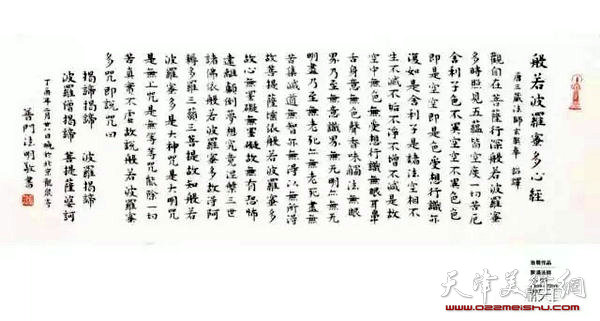 般若波羅蜜多心經
唐三藏法師玄奘奉 詔譯
觀自在菩薩行深般若波羅蜜
多時照見五蘊皆空度一切苦厄
舍利子色不異空空不異色色
即是空空即是色受想行識亦
復如是舍利子是諸法空相不
生不滅不垢不淨不增不減是故
空中無色無受想行識無眼耳鼻
舌身意無色聲香味觸法無眼
界乃至無意識界無無明亦無無
明盡乃至無老死亦無老死盡無
苦集滅道無智亦無得以無所得
故菩提薩埵依般若波羅蜜多
故心無罣礙無罣礙故無有恐怖
遠離顛倒夢想究竟涅槃三世
諸佛依般若波羅蜜多故得阿
耨多羅三藐三菩提故知般若
波羅蜜多是大神咒是大明咒
是無上咒是無等等咒能除一切
苦真實不虛故說般若波羅蜜
多咒即說咒曰
揭諦揭諦 波羅揭諦
波羅僧揭諦 菩提薩婆訶
普門法明敬書
天津美術網
www.022meishu.com